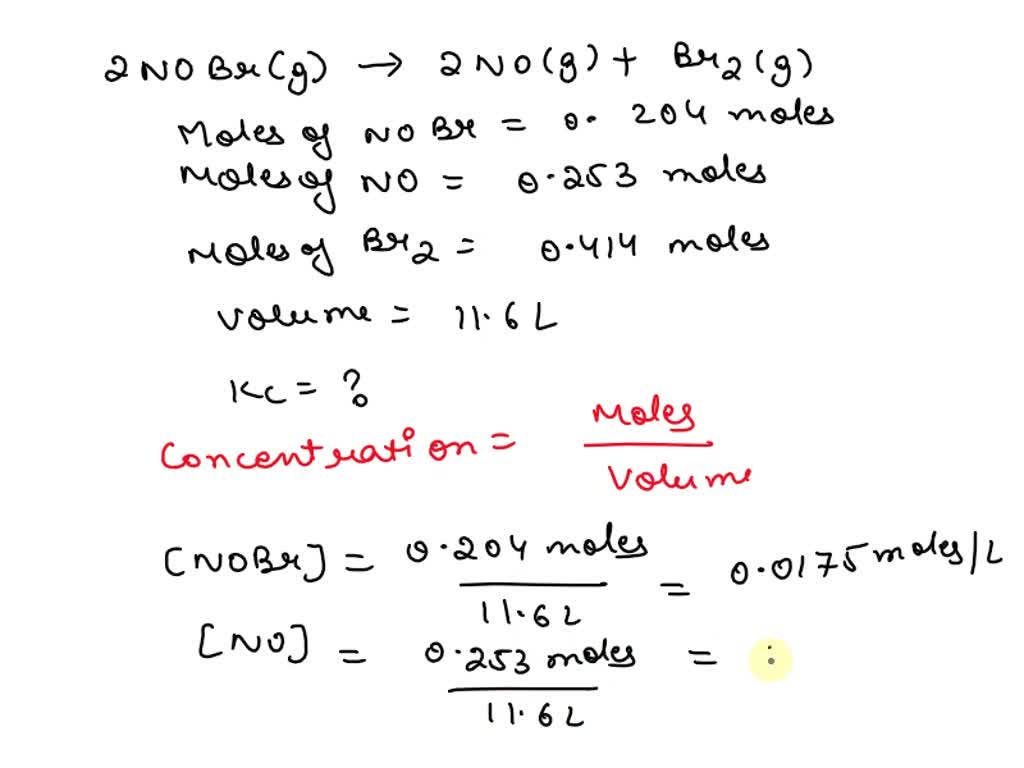 2NOBr(g) → 2NO(g) + Br2(g)
Moles of NOBr = 0.204 moles
Moles of NO = 0.253 moles
Moles of Br2 = 0.414 moles
Volume = 11.6 L
Kc = ?
Concentration = Moles / Volume
[NOBr] = 0.204 moles / 11.6 L = 0.0175 moles/L
[NO] = 0.253 moles / 11.6 L =